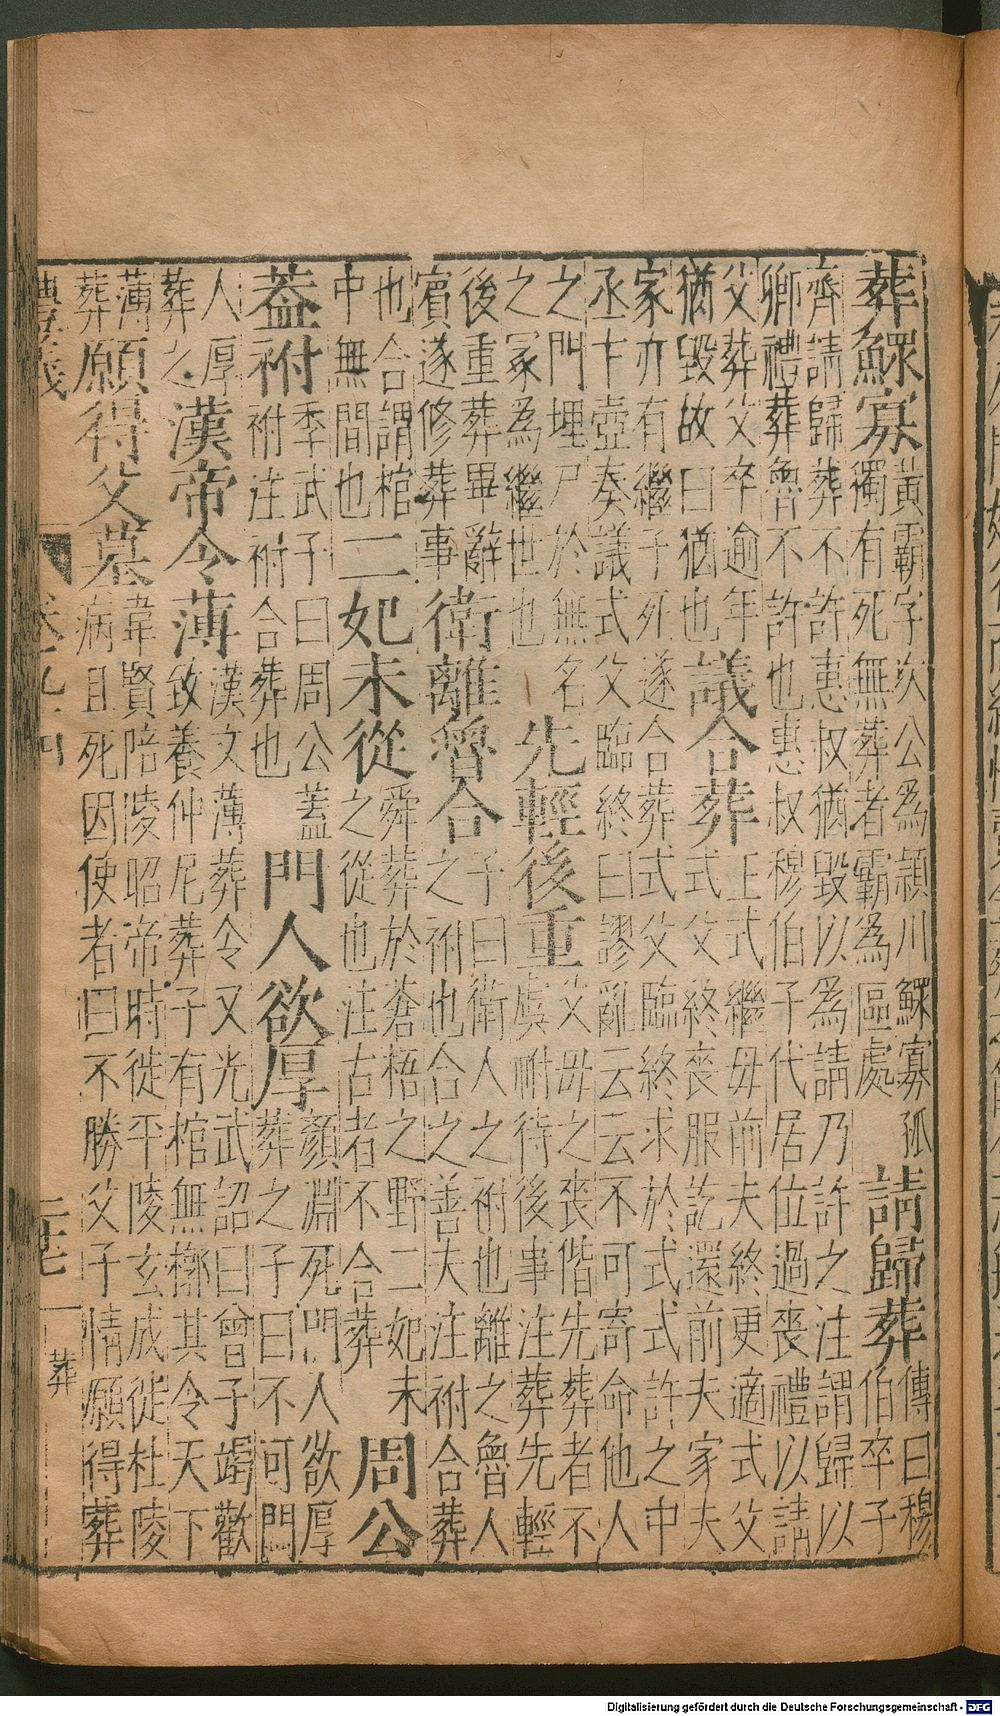 葬鰥寡
黃霸字次公為潁川鰥寡孤
獨有死無葬者霸為區處
請歸葬
傳曰穆
伯卒子
齊請歸葬不許惠叔猶毀以為請乃許之注謂歸以
卿禮葬魯不許也惠叔穆伯子代居位過喪禮以請
父葬父卒逾年
猶毀故曰猶也
議合葬
上式繼毋前夫終更適式父
式父終喪服訖還前夫家夫
家亦有繼子死遂合葬式父臨終求於式式許之中
丞卞壺奏議式父臨終曰謬亂云云不可寄命他人
之門埋尸於無名
之冢為繼世也
先輕後重
父毋之喪偕先葬者不
虞祔待後事注葬先輕
後重葬畢辭
賓遂修葬事
衛離魯合
子曰衛人之祔也離之魯人
之祔也合之善夫注祔合葬
也合謂棺
中無間也
二妃未從
舜葬於蒼梧之野二妃未
之從也注古者不合葬
周公
蓋祔
季武子曰周公蓋
祔注祔合葬也
門人欲厚
顏淵死門人欲厚
葬之子曰不可門
人厚
葬之
漢帝令薄
漢文薄葬令又光武詔曰曾子竭歡
致養仲尼葬子有棺無槨其令天下
薄
葬
願得父墓
韋賢陪陵昭帝時徙平陵玄成徙杜陵
病且死因使者曰不勝父子情願得葬
葬
Digitalisierung gefördert durch die Deutsche Forschungsgemeinschaft - DFG